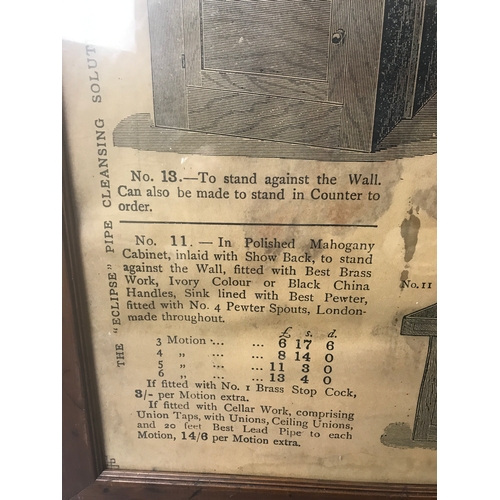 THE "ECLIPSE" PIPE CLEANSING SOLUT
No. 13.—To stand against the Wall.
Can also be made to stand in Counter to
order.
No. 11. — In Polished Mahogany
Cabinet, inlaid with Show Back, to stand
against the Wall, fitted with Best Brass
Work, Ivory Colour or Black China
Handles, Sink lined with Best Pewter,
fitted with No. 4 Pewter Spouts, London-
made throughout.
£ s. d.
3 Motion ... ... 6 17 6
4 „ ... ... 8 14 0
5 „ ... ... 11 3 0
6 „ ... ... 13 4 0
If fitted with No. 1 Brass Stop Cock,
3/- per Motion extra.
If fitted with Cellar Work, comprising
Union Taps, with Unions, Ceiling Unions,
and 20 feet Best Lead Pipe to each
Motion, 14/6 per Motion extra.
No. 11